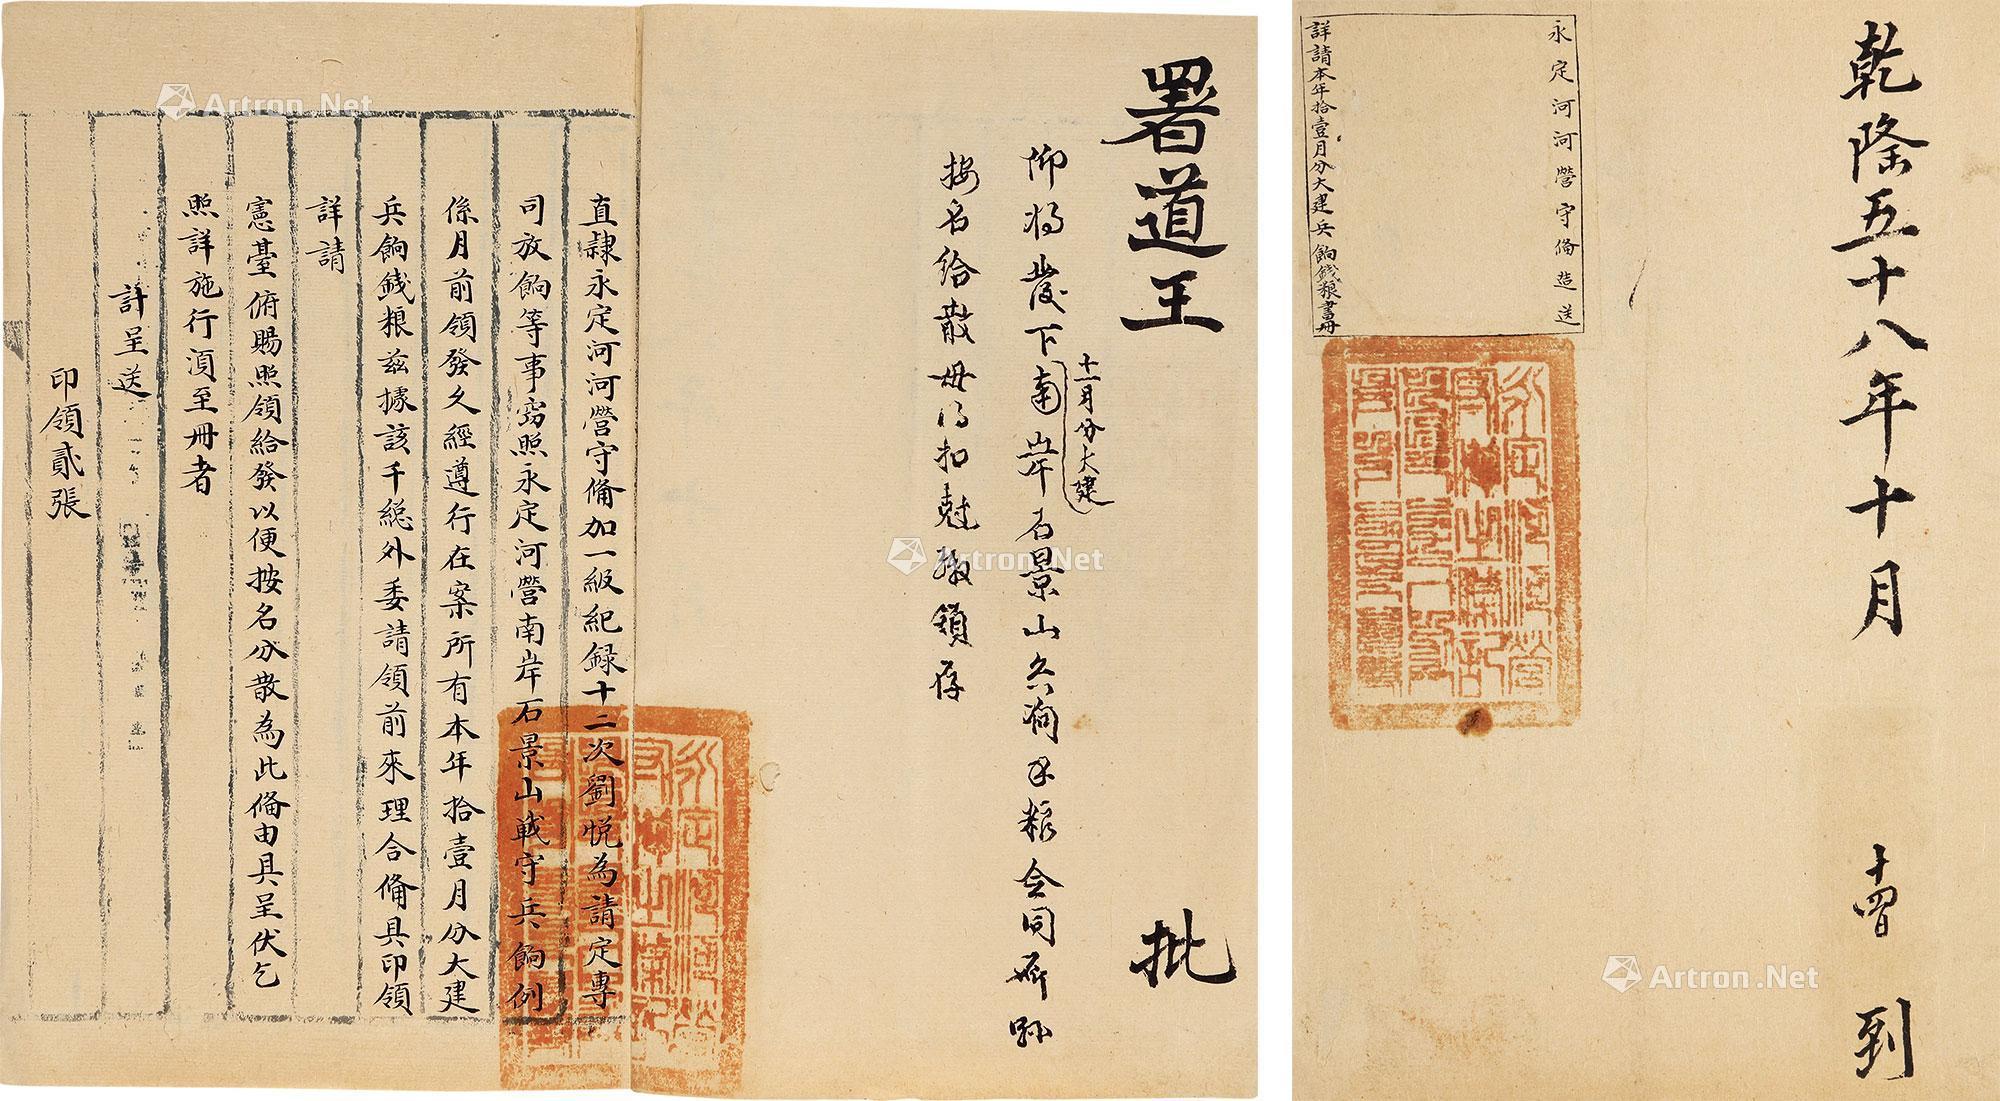 乾隆五十八年十月
十四日
到
永定河河營守俻造送
詳請本年拾壹月分大建兵餉錢粮書冊
署道王
批
仰将發下南岸石景山兵餉
十一月分大建
按名給散毋得扣尅 領存
直隸永定河河營守俻加一級紀録十二次劉悦為請定專
司放餉等事窃照永定河營南岸石景山戰守兵餉例
係月前領發久經遵行在案所有本年拾壹月分大建
兵餉錢粮兹據該千總外委請領前來理合俻具印領
詳請
憲臺俯賜照領給發以便按名分散為此俻由具呈伏乞
照詳施行須至冊者
計呈送
印領貳張
Artron.Net
Artron.Net
Artron.Net